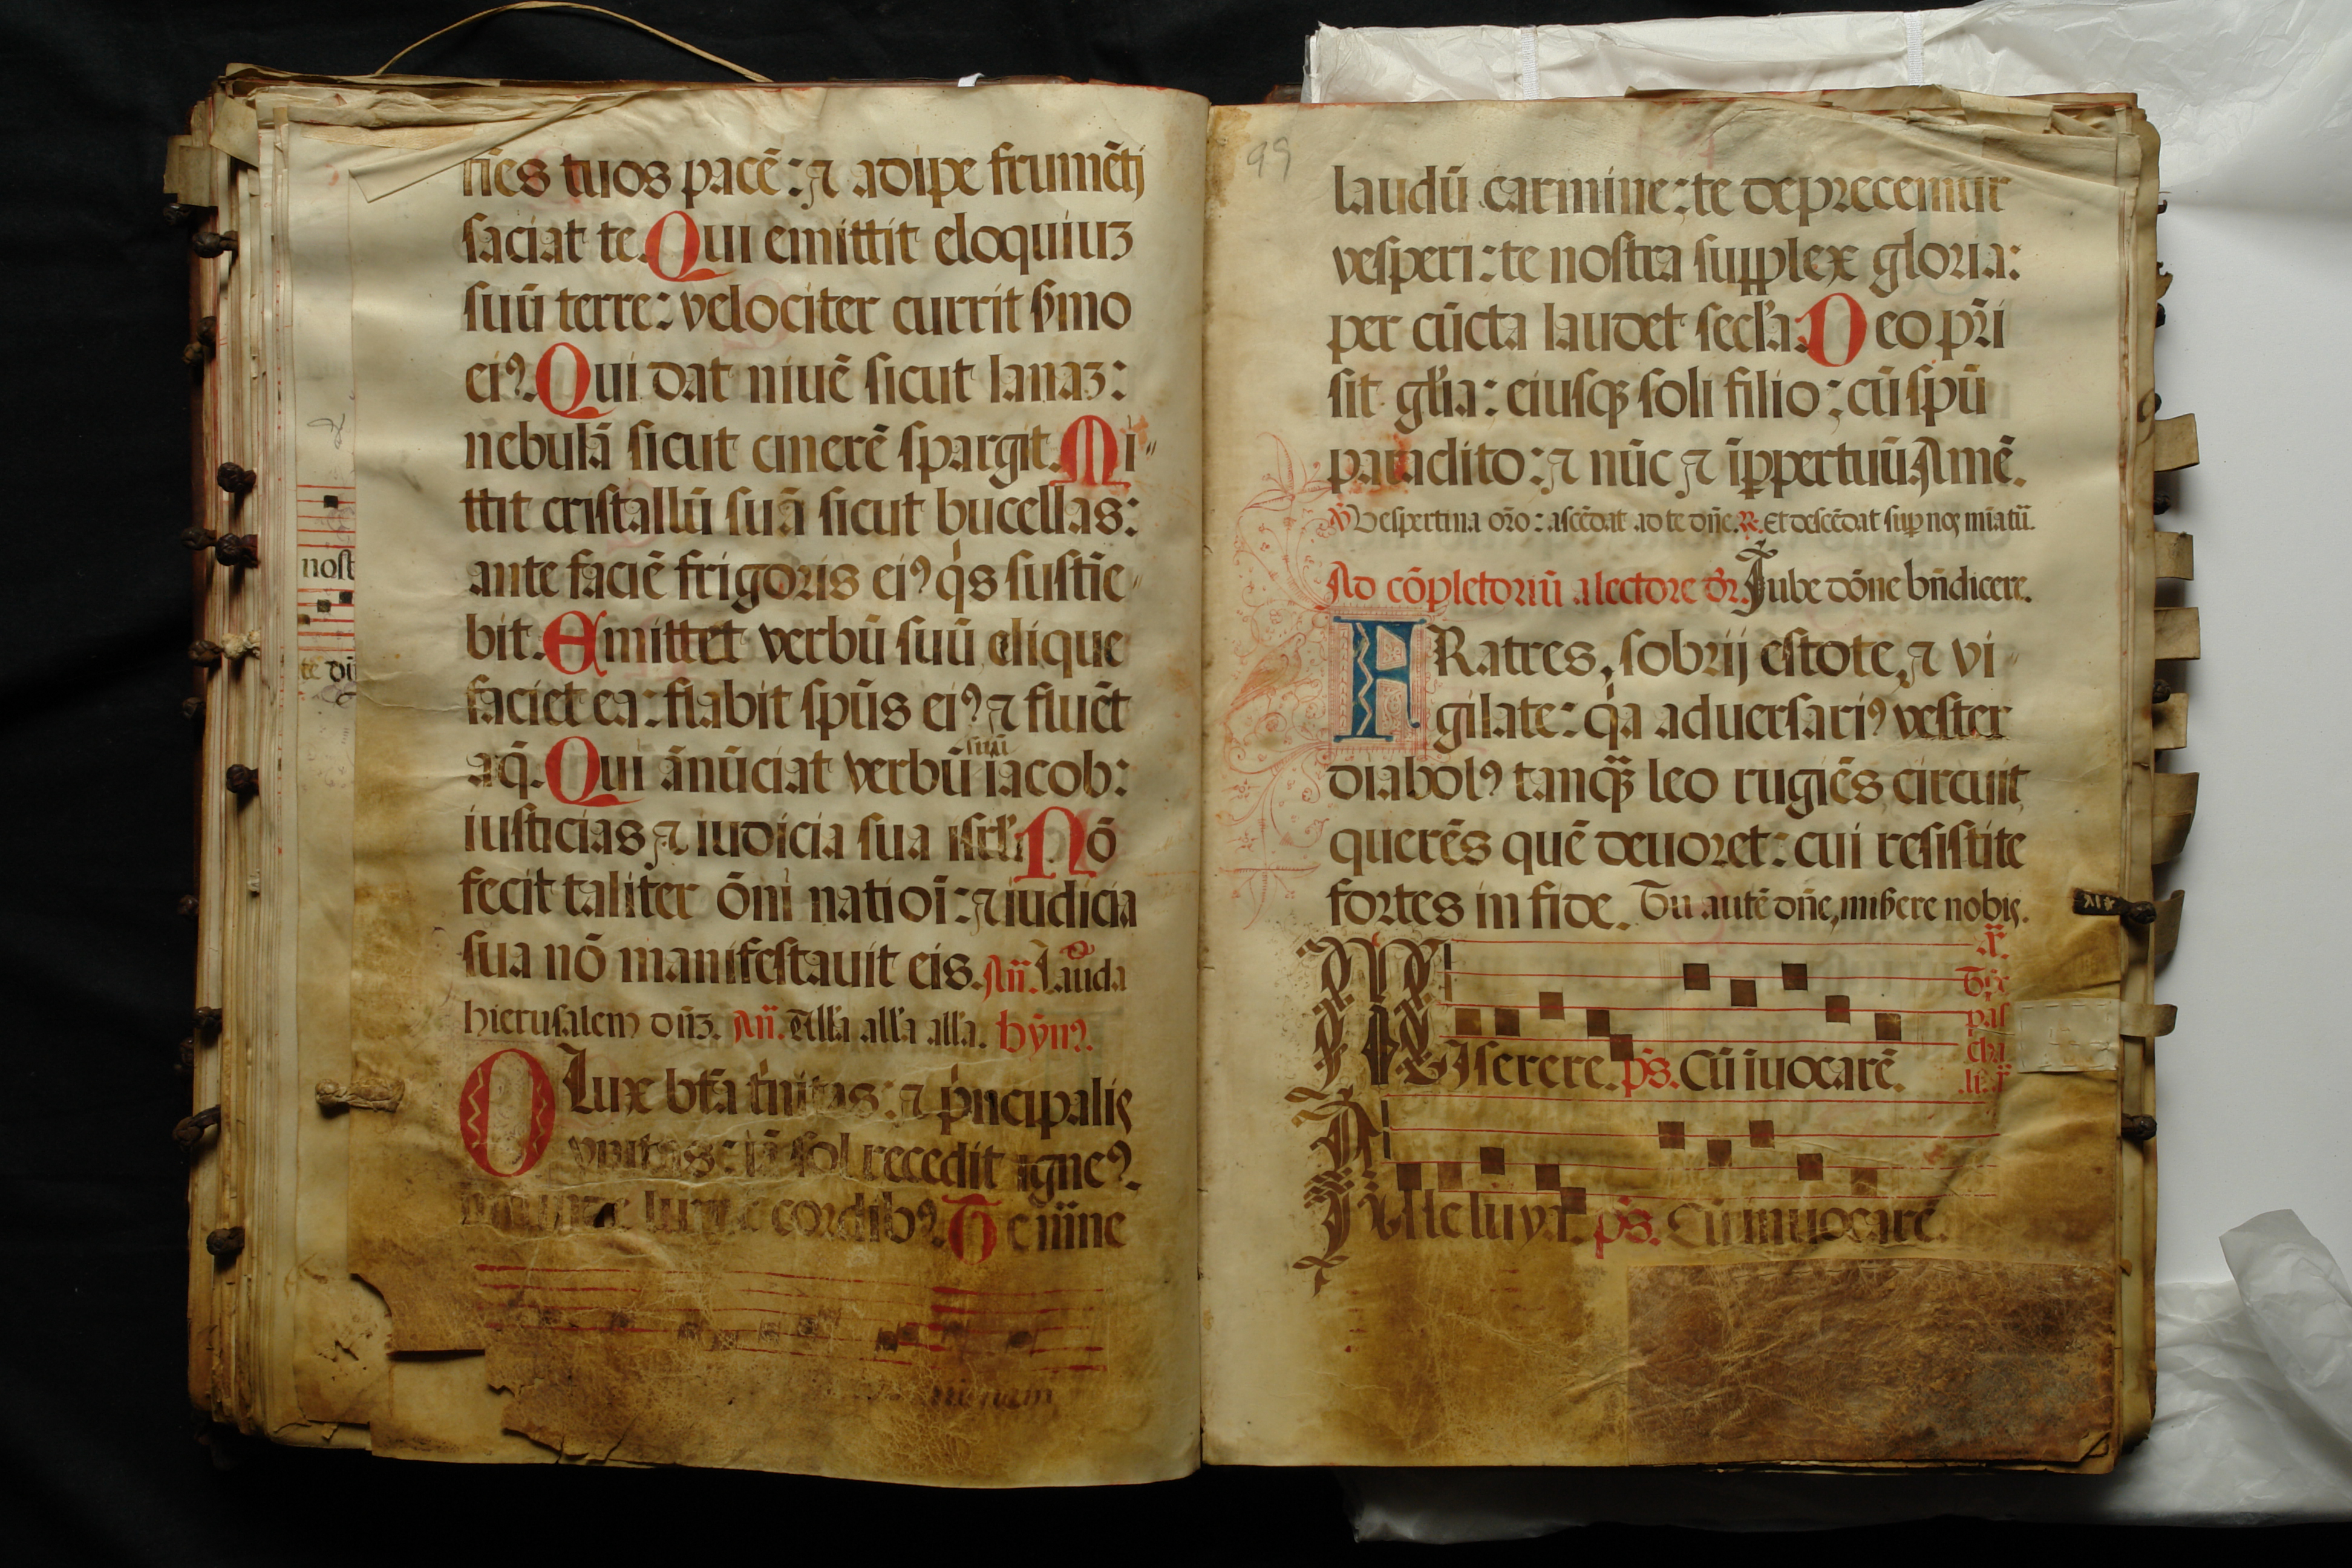 nēs tuos pacē: ⁊ adipe frumēti
saciat te. Qui emittit eloquiuz
suū terre: velociter currit ẜmo
eiꝰ. Qui dat niuē sicut lanaz:
nebulā sicut cinerē spargit. Mi-
ttit cristallū suā sicut bucellas:
ante faciē frigoris eiꝰ qͥs sustīe-
bit. Emittet verbū suū ⁊ lique
faciet ea: flabit spūs eiꝰ ⁊ fluēt
aq̄. Qui ānūciat verbū suū iacob:
iusticias ⁊ iudicia sua isrl̄. Nō
fecit taliter ōni natioī: ⁊ iudicia
sua nō manifestauit eis. Añ. Lauda
hierusalem dn̄z. Añ. Alľa alľa alľa. hȳnꝰ.
O Lux bt̄a tͥnitas: ⁊ pͥncipalis
vnitas: iā sol recedit igneꝰ.
lumē cordibꝰ. Te mane
nost
te
99
laudū carmine: te deprecemur
vesperi: te nostra supplex gloria:
per cūcta laudet secľa. Deo pr̄i
sit gľia: eiusqꝫ soli filio: cū spū
paraclito: ⁊ nūc ⁊ īꝑpetuū. Amē.
℣ Vespertina orō: ascēdat ad te dn̄e. ℟. Et descēdat suꝑ nos mīa tū.
Ad cōpletoriū a lectore dr̄. Jube dōne bn̄dicere.
FRatres, sobrij estote, ⁊ vi-
gilate: qͥa aduersariꝰ vester
diabolꝰ tanqꝫ leo rugiēs, circuit
querēs quē deuoret: cui resistite
fortes in fide. Tu autē dn̄e, miẜere nobis.
MIserere. ps̄. Cū īuocarē.
Tꝑe
pas
cha
li.
Alleluya. ps̄. Cū inuocarē.